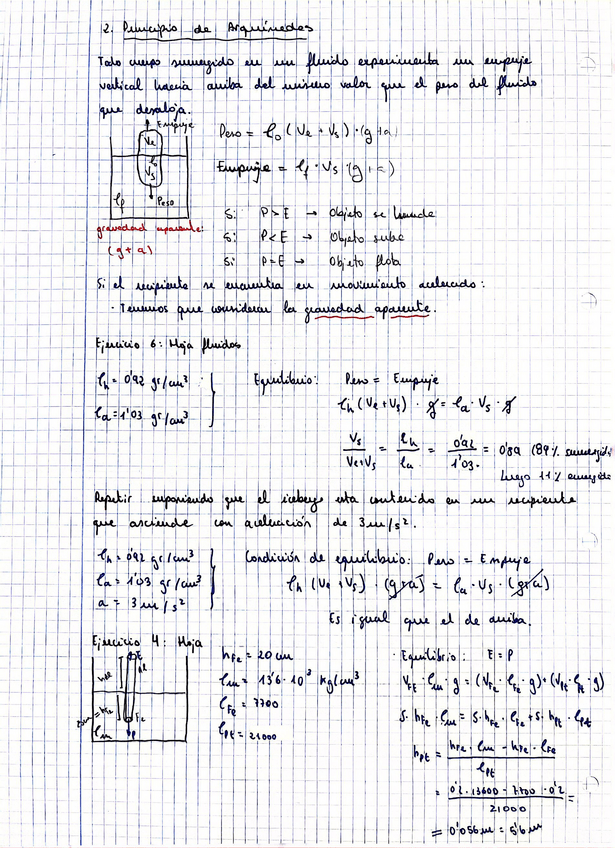 2. Principio de Arquímedes
Todo cuerpo sumergido en un fluido experimenta un empuje
vertical hacia arriba del mismo valor que el peso del fluido
que desaloja.
Empuje
Ve
Vs
ρf
Peso
Peso = ρo (Ve + Vs) · (g + a)
Empuje = ρf · Vs (g + a)
gravedad aparente:
(g + a)
Si P > E → Objeto se hunde
Si P < E → Objeto sube
Si P = E → Objeto flota
Si el recipiente se encuentra en movimiento acelerado:
· Tenemos que considerar la gravedad aparente.
Ejercicio 6: Hoja fluidos
ρh = 0'92 gr/cm³
ρa = 1'03 gr/cm³
Equilibrio: Peso = Empuje
ρh (Ve + Vs) · g = ρa · Vs · g
Vs / Ve + Vs = ρh / ρa = 0'92 / 1'03 = 0'89 (89% sumergido
Luego 11% emergido
Repetir suponiendo que el iceberg esta contenido en un recipiente
que asciende con aceleración de 3 m/s².
ρh = 0'92 gr/cm³
ρa = 1'03 gr/cm³
a = 3 m/s²
Condición de equilibrio: Peso = Empuje
ρh (Ve + Vs) · (g+a) = ρa · Vs · (g+a)
Es igual que el de arriba.
Ejercicio 4: Hoja
E
Fe
ρm
P
hFe = 20 cm
ρm = 13'6 · 10³ kg/cm³
ρFe = 7700
ρPt = 21000
Equilibrio: E = P
VFe · ρm · g = (VFe · ρFe · g) + (VPt · ρPt · g)
S · hFe · ρm = S · hFe · ρFe + S · hPt · ρPt
hPt = hFe · ρm - hFe · ρFe / ρPt
= 0'2 · 13600 - 7700 · 0'2 / 21000 =
= 0'056 m = 5'6 m